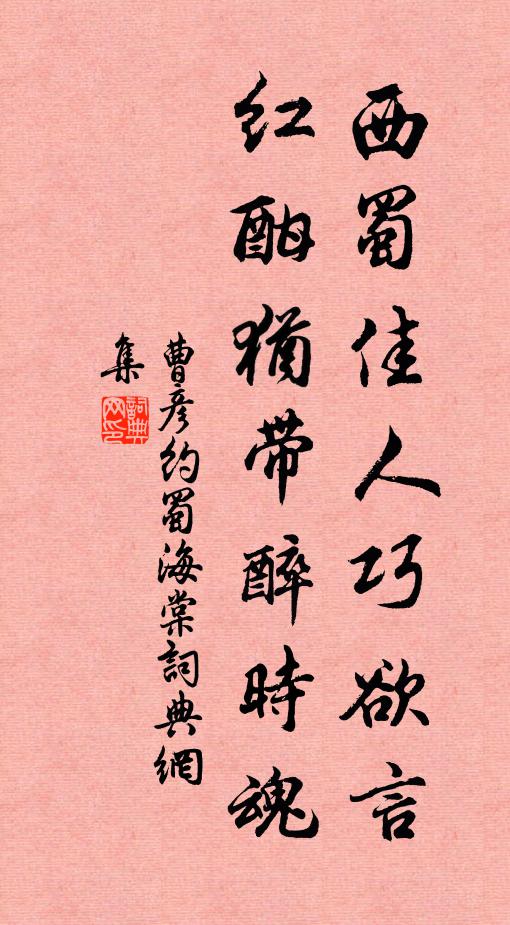 西蜀佳人巧欲言
紅酣猶带醉時魂
曹彦约蜀海棠詞典網
集
詞典网印